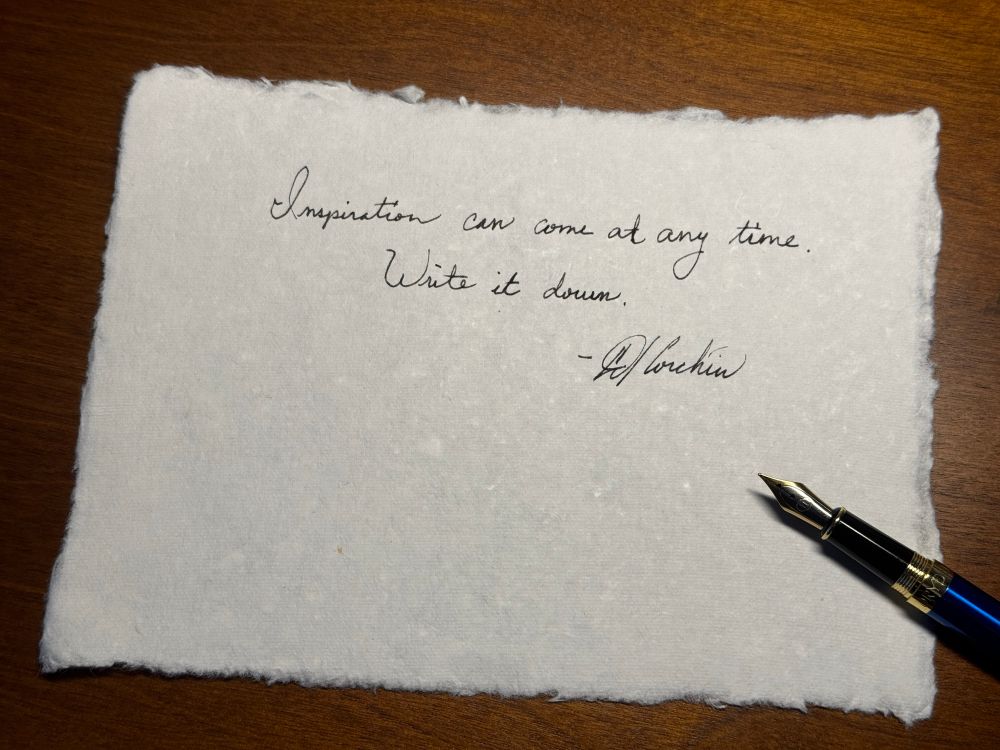 Inspiration can come at any time.
Write it down.